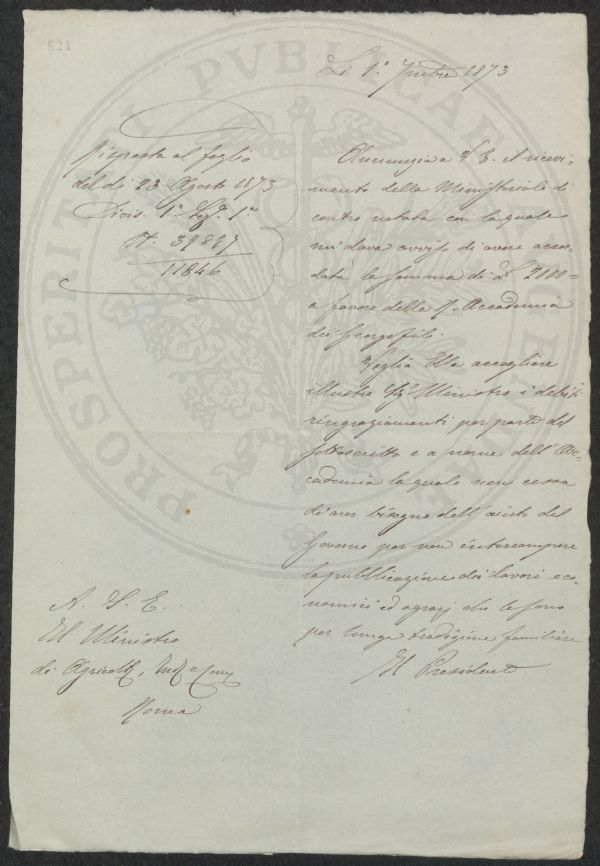 821
Li 1° 7mbre 1873
Risposta al foglio
del dì 23 Agosto 1873
Divis. 1ª Sez. 1ª
N. 39867
11846
Annunzio a V. E. il ricevi-
mento della Ministeriale di
contro notata con la quale
mi dava avviso di avere accor-
data la somma di £ 2000=
a favore della R. Accademia
dei Georgofili.
Voglia Ella accogliere
illustre Sig. Ministro i debiti
ringraziamenti per parte del
sottoscritto e a nome dell'Ac-
cademia la quale non cessa
di aver bisogno dell'aiuto del
Governo per non interrompere
la pubblicazione dei lavori eco-
nomici ed agrarj che le sono
per lunga tradizione familiari
Il Presidente
A. S. E.
Il Ministro
di Agricolt, Ind e Com
Roma
PROSPERITATI PVBLICAE AVGENDAE